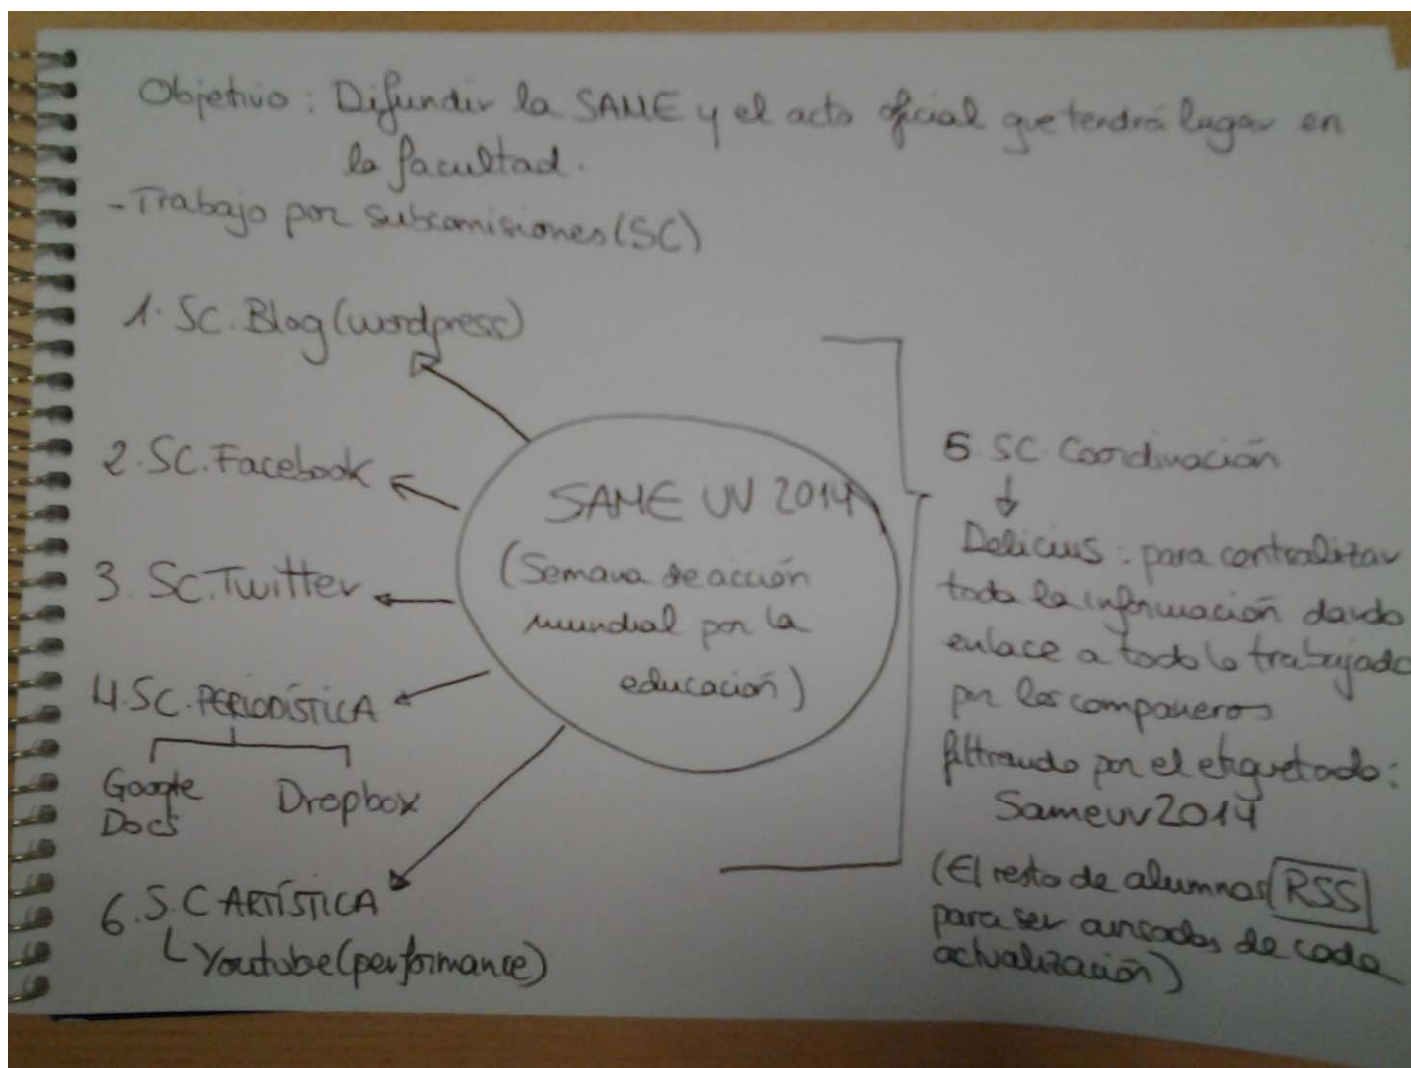 Objetivo: Difundir la SAME y el acto oficial que tendrá lugar en
la facultad.
-Trabajo por subcomisiones (SC)
1. SC. Blog (wordpress)
2. SC. Facebook
3. SC. Twitter
4. SC. PERIODÍSTICA
Google
Docs
Dropbox
6. S.C ARTÍSTICA
Youtube (performance)
SAME UV 2014
(Semana de acción
mundial por la
educación)
5 SC Coordinación
Delicius: para centralizar
toda la información dando
enlace a todo lo trabajado
por los compañeros
filtrando por el etiquetado:
Sameuv2014
(El resto de alumnos RSS
para ser avisados de cada
actualización)